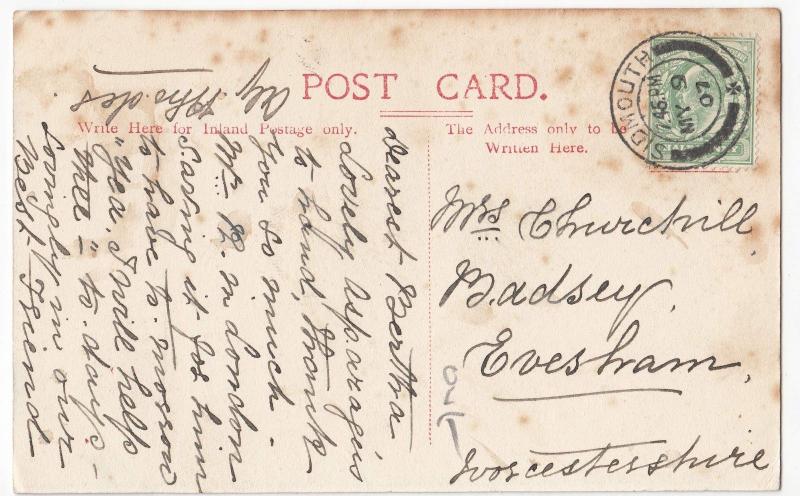 POST CARD.
Write Here for Inland Postage only.
The Address only to be
Written Here.
SIDMOUTH
7.45 PM
JY 9
07
Dearest Bertha
Lovely asparagus
to hand, thank
you so much -
Mr R. in London
Saving it for him
to have to-morrow
"Yea, I will help
thee" to-days -
Lovingly in our
Best Friend
Aly Rhodes.
Mrs Churchill
Badsey,
Evesham,
Worcestershire